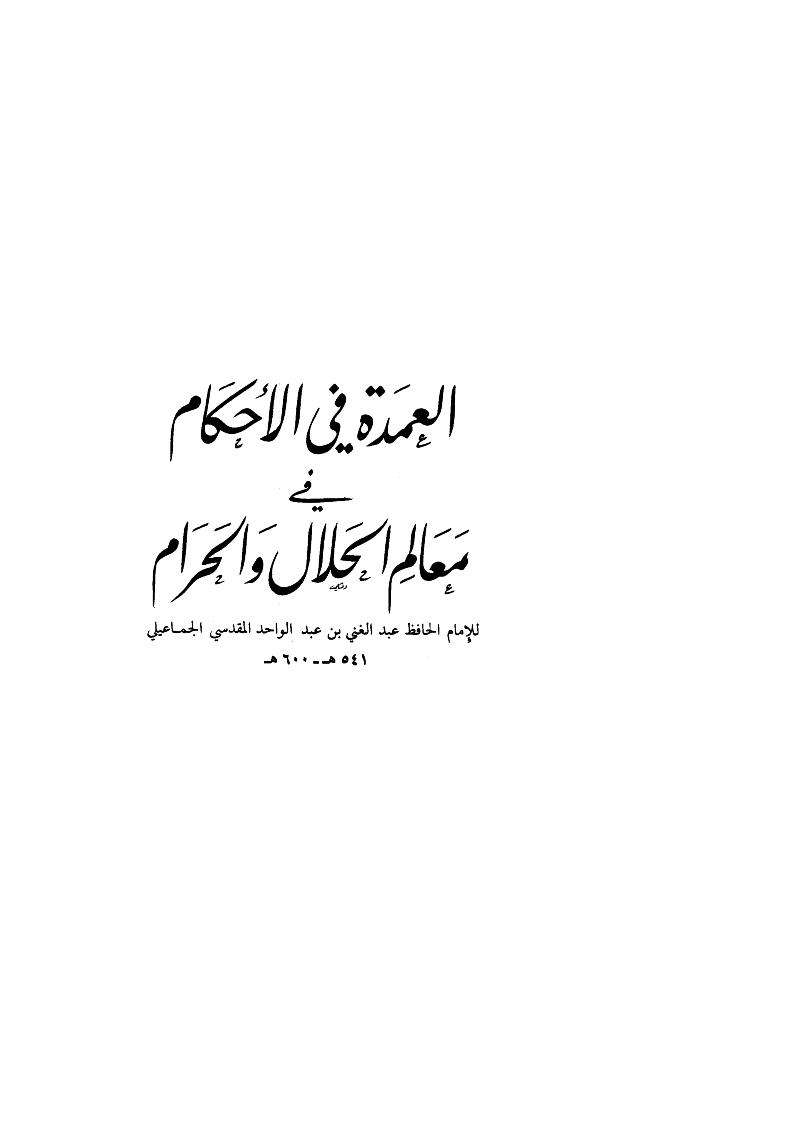 العمدة في الأحكام
في
معالم الحلال والحرام
للإمام الحافظ عبد الغني بن عبد الواحد المقدسي الجماعيلي
٥٤١ هـ ــ ٦٠٠ هـ